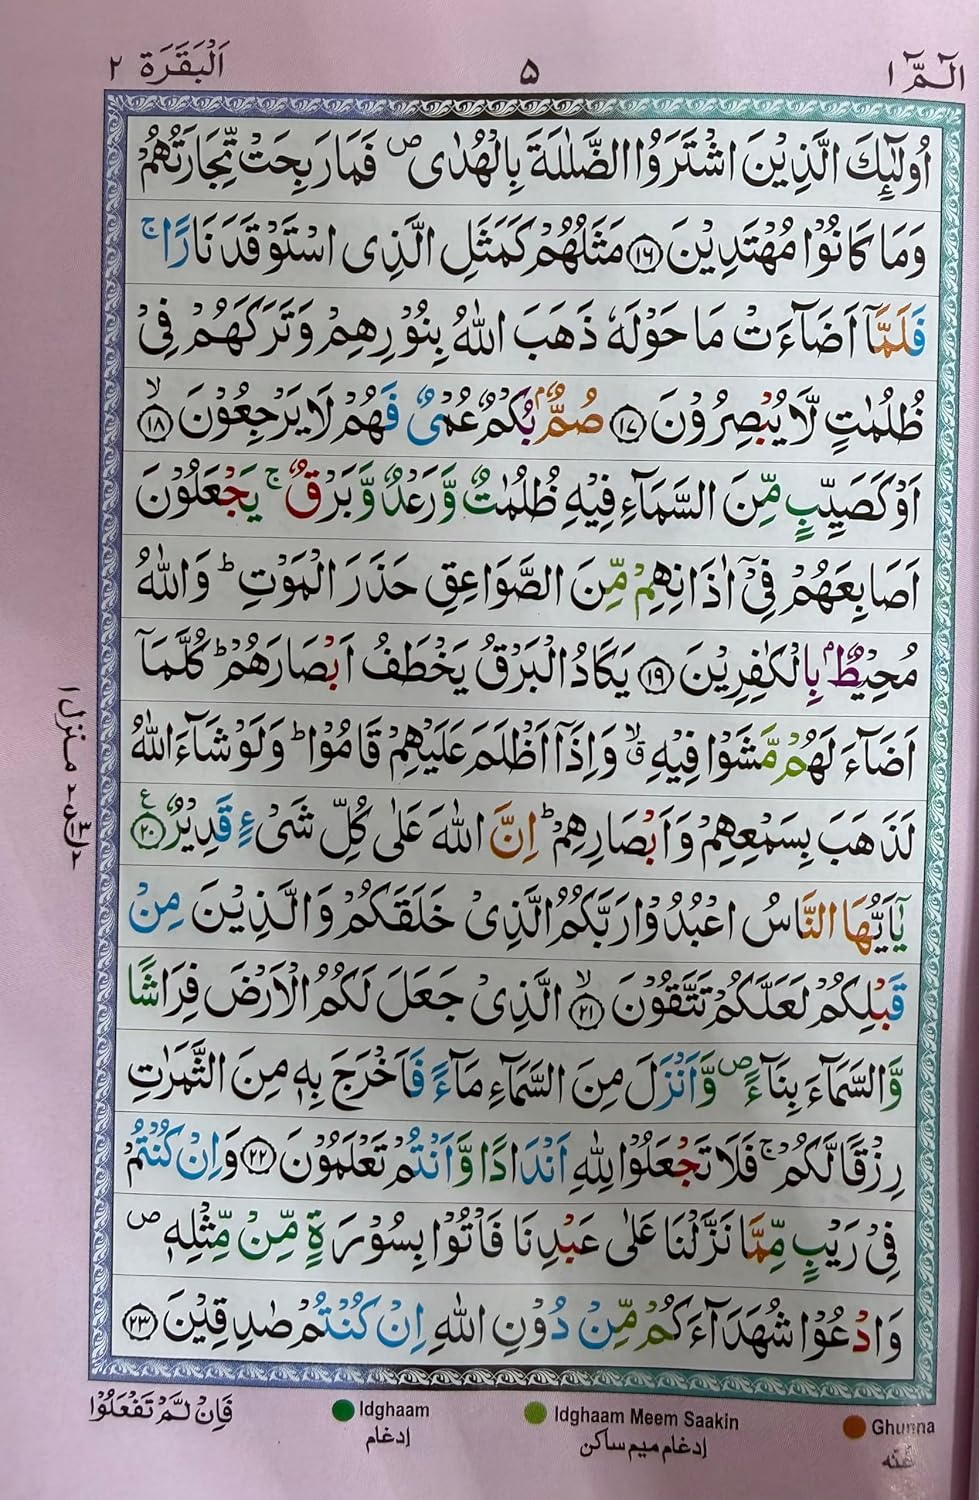 الٓمّٓ ١
٥
اَلْبَقَرَة ٢
اُولٰٓئِكَ الَّذِيْنَ اشْتَرَوُا الضَّلٰلَةَ بِالْهُدٰى ۪ فَمَا رَبِحَتْ تِّجَارَتُهُمْ
وَمَا كَانُوْا مُهْتَدِيْنَ ۝١٦ مَثَلُهُمْ كَمَثَلِ الَّذِى اسْتَوْقَدَ نَارًا ۚ
فَلَمَّاۤ اَضَآءَتْ مَا حَوْلَهٗ ذَهَبَ اللّٰهُ بِنُوْرِهِمْ وَتَرَكَهُمْ فِىْ
ظُلُمٰتٍ لَّا يُبْصِرُوْنَ ۝١٧ صُمٌّۢ بُكْمٌ عُمْىٌ فَهُمْ لَا يَرْجِعُوْنَ ۝١٨ۙ
اَوْ كَصَيِّبٍ مِّنَ السَّمَآءِ فِيْهِ ظُلُمٰتٌ وَّرَعْدٌ وَّبَرْقٌ ۚ يَجْعَلُوْنَ
اَصَابِعَهُمْ فِىْۤ اٰذَانِهِمْ مِّنَ الصَّوَاعِقِ حَذَرَ الْمَوْتِ ؕ وَاللّٰهُ
مُحِيْطٌۢ بِالْكٰفِرِيْنَ ۝١٩ يَكَادُ الْبَرْقُ يَخْطَفُ اَبْصَارَهُمْ ؕ كُلَّمَاۤ
اَضَآءَ لَهُمْ مَّشَوْا فِيْهِ ۙق وَاِذَاۤ اَظْلَمَ عَلَيْهِمْ قَامُوْا ؕ وَلَوْ شَآءَ اللّٰهُ
لَذَهَبَ بِسَمْعِهِمْ وَاَبْصَارِهِمْ ؕ اِنَّ اللّٰهَ عَلٰى كُلِّ شَىْءٍ قَدِيْرٌ ۝٢٠ ع
يٰۤاَيُّهَا النَّاسُ اعْبُدُوْا رَبَّكُمُ الَّذِىْ خَلَقَكُمْ وَالَّذِيْنَ مِنْ
قَبْلِكُمْ لَعَلَّكُمْ تَتَّقُوْنَ ۝٢١ۙ الَّذِىْ جَعَلَ لَكُمُ الْاَرْضَ فِرَاشًا
وَّالسَّمَآءَ بِنَآءً ۪ وَّاَنْزَلَ مِنَ السَّمَآءِ مَآءً فَاَخْرَجَ بِهٖ مِنَ الثَّمَرٰتِ
رِزْقًا لَّكُمْ ۚ فَلَا تَجْعَلُوْا لِلّٰهِ اَنْدَادًا وَّاَنْتُمْ تَعْلَمُوْنَ ۝٢٢ وَاِنْ كُنْتُمْ
فِىْ رَيْبٍ مِّمَّا نَزَّلْنَا عَلٰى عَبْدِنَا فَاْتُوْا بِسُوْرَةٍ مِّنْ مِّثْلِهٖ ۪
وَادْعُوْا شُهَدَآءَكُمْ مِّنْ دُوْنِ اللّٰهِ اِنْ كُنْتُمْ صٰدِقِيْنَ ۝٢٣
منزل ١
فَاِنْ لَّمْ تَفْعَلُوْا
Idghaam
إدغام
Idghaam Meem Saakin
إدغام ميم ساكن
Ghunna
غنه